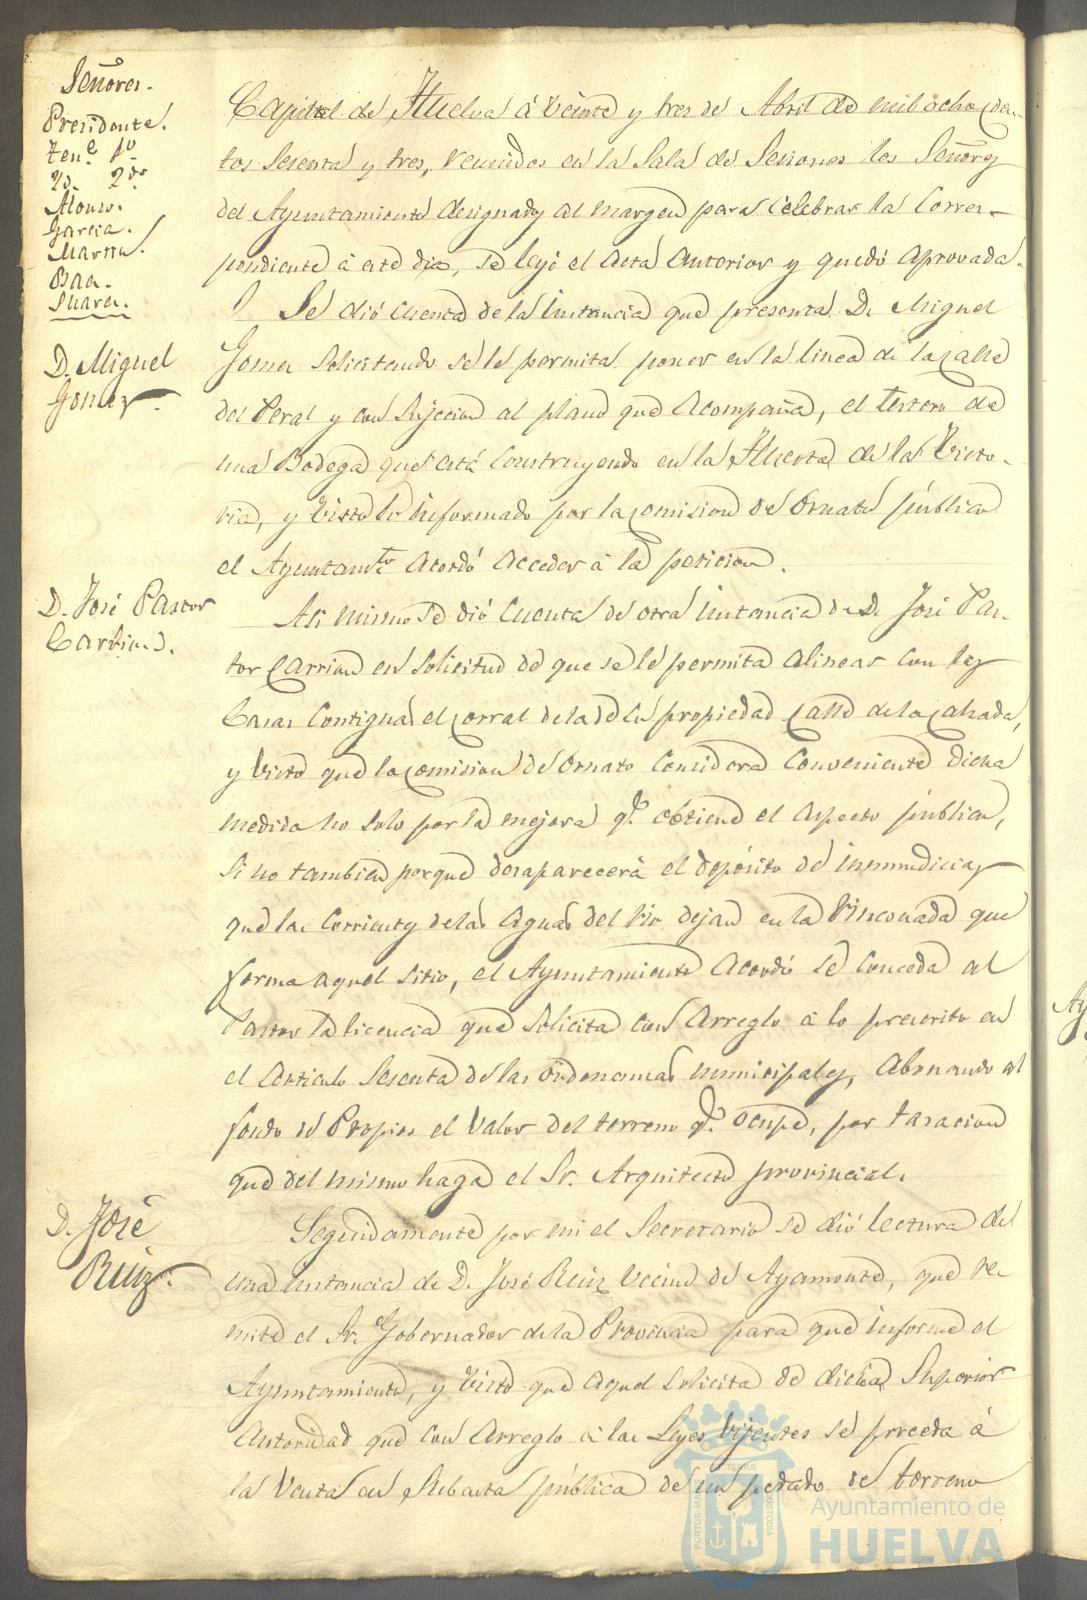 Señores.
Presidente.
Tene. 1º
Yd. 2do
Alonso.
Garcia.
Martin.
Baa.
Suarez.
Capital de Huelva á veinte y tres de Abril de mil ochocien-
tos sesenta y tres, reunidos en la Sala de Sesiones los Señores
del Ayuntamiento designados al margen para celebrar la Corres-
pondiente á este dia, se leyó el Acta Anterior y quedó aprovada.
D. Miguel
Gomez.
Se dió cuenta de la instancia que presenta D. Miguel
Gomez solicitando se le permita poner en la linea de la calle
del Peral y con sujecion al plano que acompaña, el testero de
una Bodega que está construyendo en la Huerta de la Victo-
ria, y visto lo informado por la comision de Ornato público
el Ayuntamto. acordó acceder á la peticion.
D. José Pastor
Carrion.
Asi mismo se dió cuenta de otra instancia de D. José Pas-
tor Carrion en solicitud de que se le permita alinear con las
Casas contiguas el corral de la de su propiedad calle de la calzada,
y visto que la comision de Ornato considera conveniente dicha
medida no solo por la mejora q.e obtiene el aspecto público,
si no tambien porque desaparecerá el depósito de inmundicias
que las corrientes de las aguas del rio dejan en la rinconada que
forma aquel sitio, el Ayuntamiento acordó se conceda al
Pastor la licencia que solicita con arreglo á lo prescrito en
el articulo sesenta de las ordenanzas municipales, abonando al
fondo de Propios el valor del terreno q.e ocupe, por tasacion
que del mismo haga el Sr. Arquitecto provincial.
D. José
Ruiz.
Seguidamente por mi el Secretario se dió lectura de
una instancia de D. José Ruiz vecino de Ayamonte, que re-
mite el Sr. Gobernador de la Provincia para que informe el
Ayuntamiento, y visto que aquel solicita de dicha Superior
Autoridad que con arreglo á las Leyes vijentes se proceda á
la venta en subasta pública de un pedazo de terreno
Ay
PORTUS MARIS
ET TERRÆ
CUSTODIA
Ayuntamiento de
HUELVA